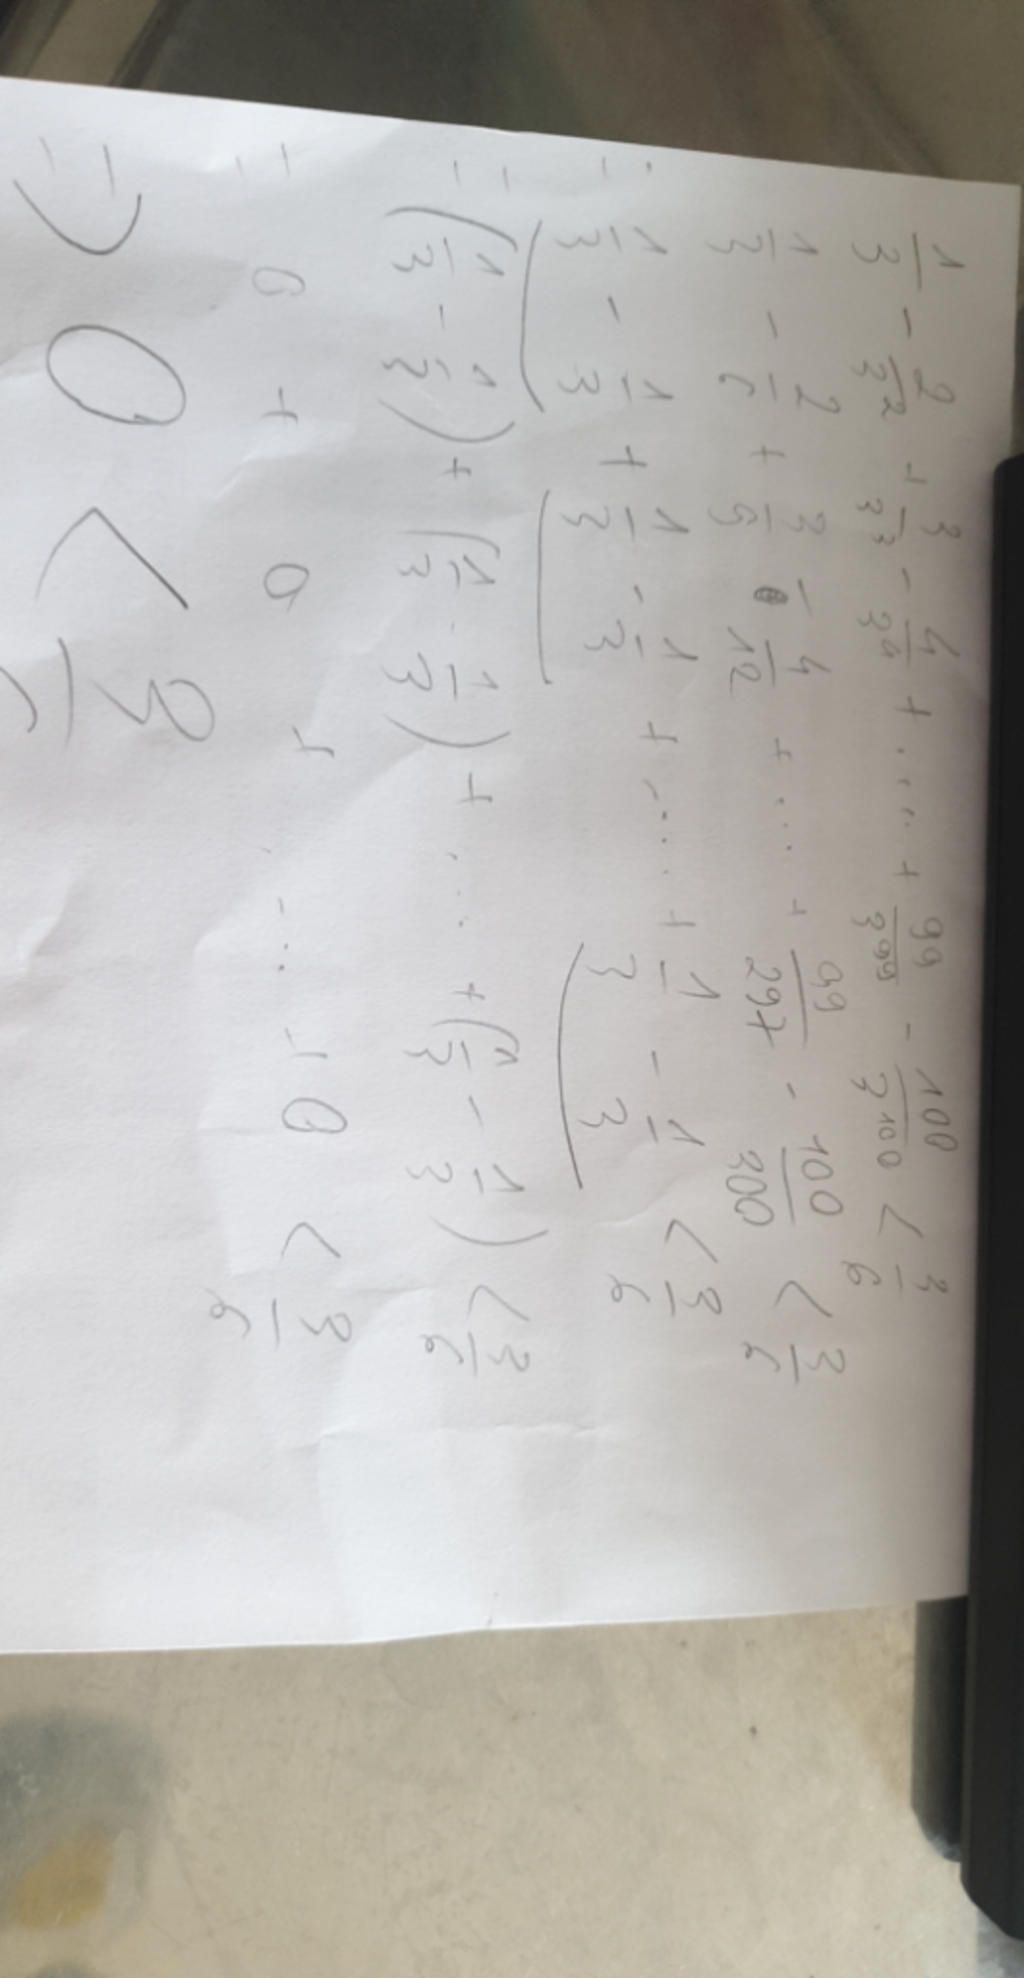 1/3 - 2/3² + 3/3³ - 4/3⁴ + .... + 99/3⁹⁹ - 100/3¹⁰⁰ < 3/6
1/3 - 2/6 + 3/9 - 4/12 + .... + 99/297 - 100/300 < 3/6
= 1/3 - 1/3 + 1/3 - 1/3 + .... + 1/3 - 1/3 < 3/6
= (1/3 - 1/3) + (1/3 - 1/3) + .... + (1/3 - 1/3) < 3/6
= 0 + 0 + ... + 0 < 3/6
=> 0 < 3/6